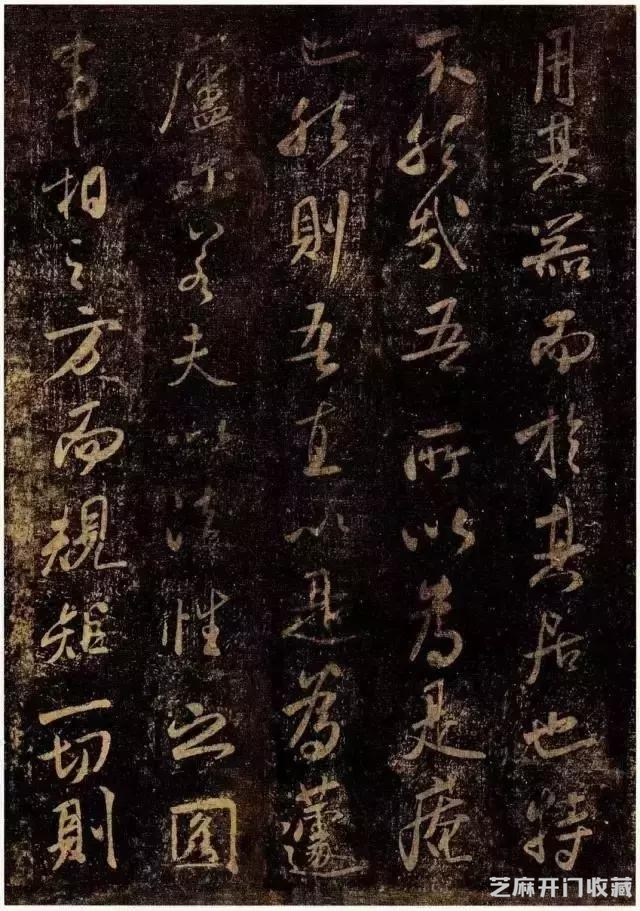 用其器而於其居也特
不然哉吾所以為是庵
也然則吾直以是為蘧
廬尔若夫以法性之圓
事相之方而規矩一切則
芝麻开门收藏